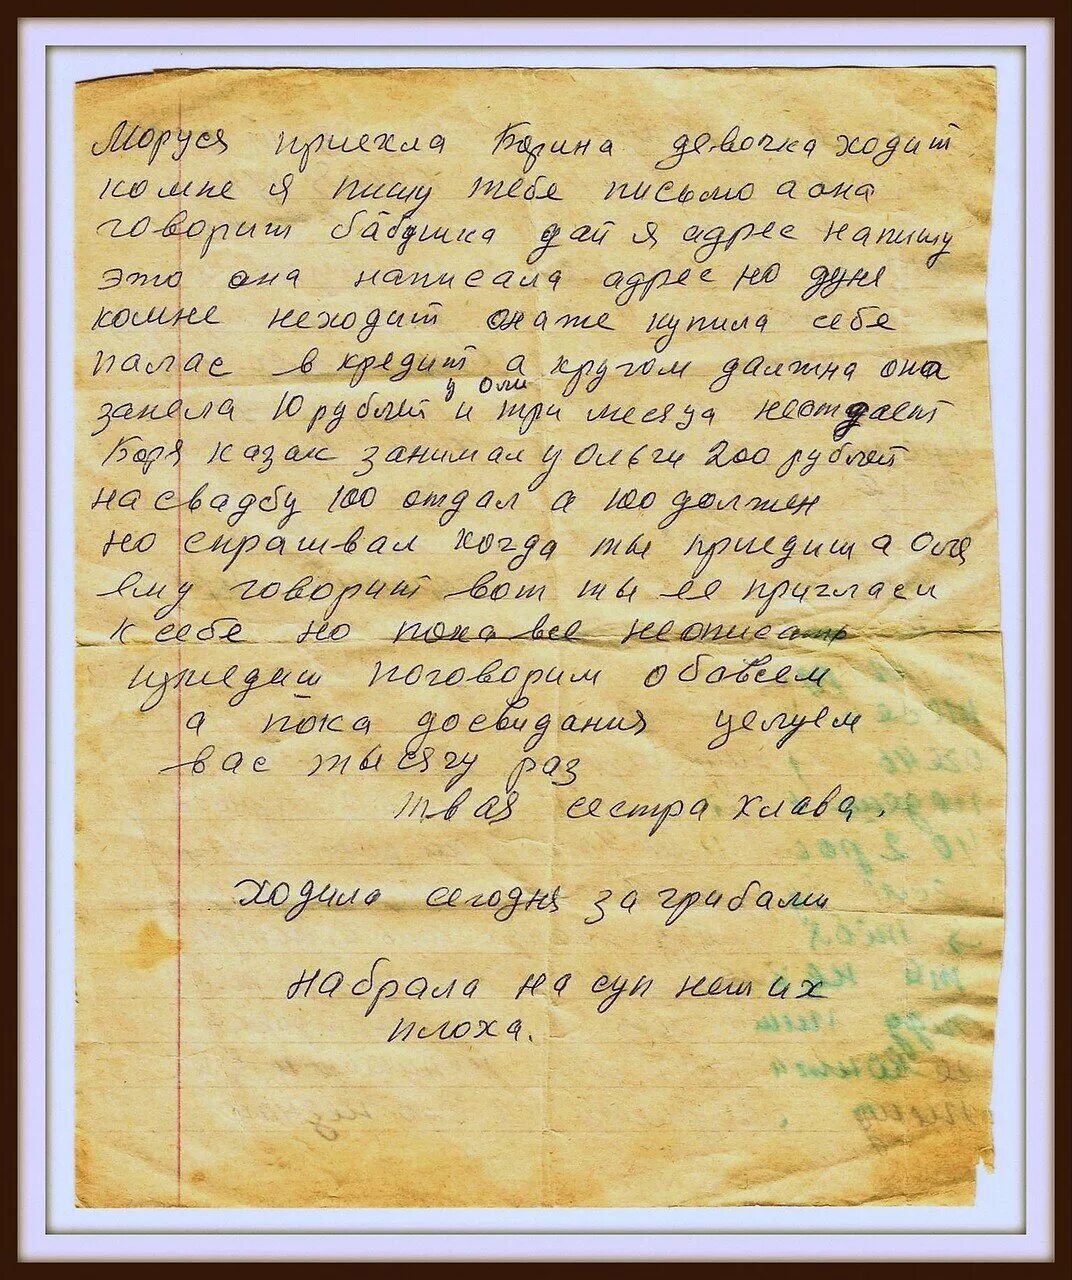 Моруся приехла Борина девочка ходит
комне я пишу тебе письмо а она
говорит бабушка дай я адрес напишу
это она написала адрес но дуня
комне неходит она же купила себе
палас в кредит а кругом должна она
заняла 10 рублей у Оли и три месяца неотдает
Боря казак занимал у Ольги 200 рублей
на свадбу 100 отдал а 100 должен
но спрашвал когда ты приедиш а Оля
ему говорит вот ты ее пригласи
к себе но пока все неописать
приедиш поговорим обовсем
а пока досвидания целуем
вас тысячу раз
твая сестра клава.
ходила сегодня за грибами
набрала на суп неш их
плоха.